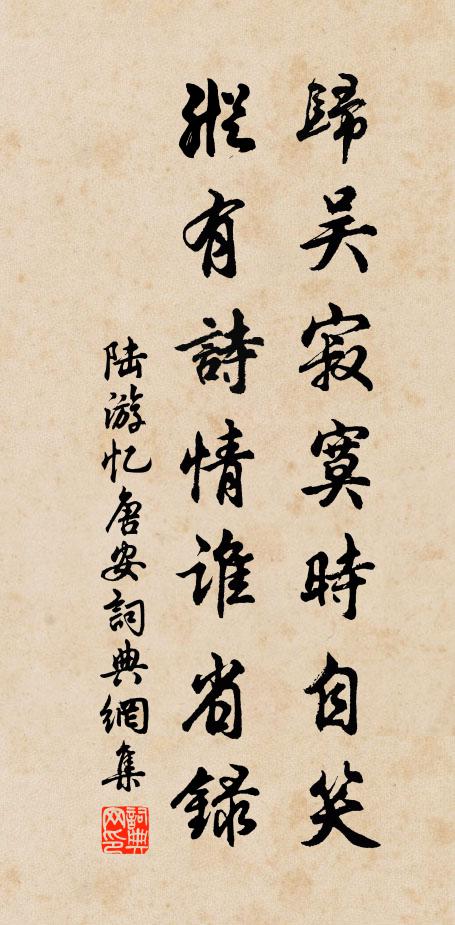 歸吴寂寞時自笑
縱有詩情誰省錄
陆游忆唐安詞典網集
詞典网印